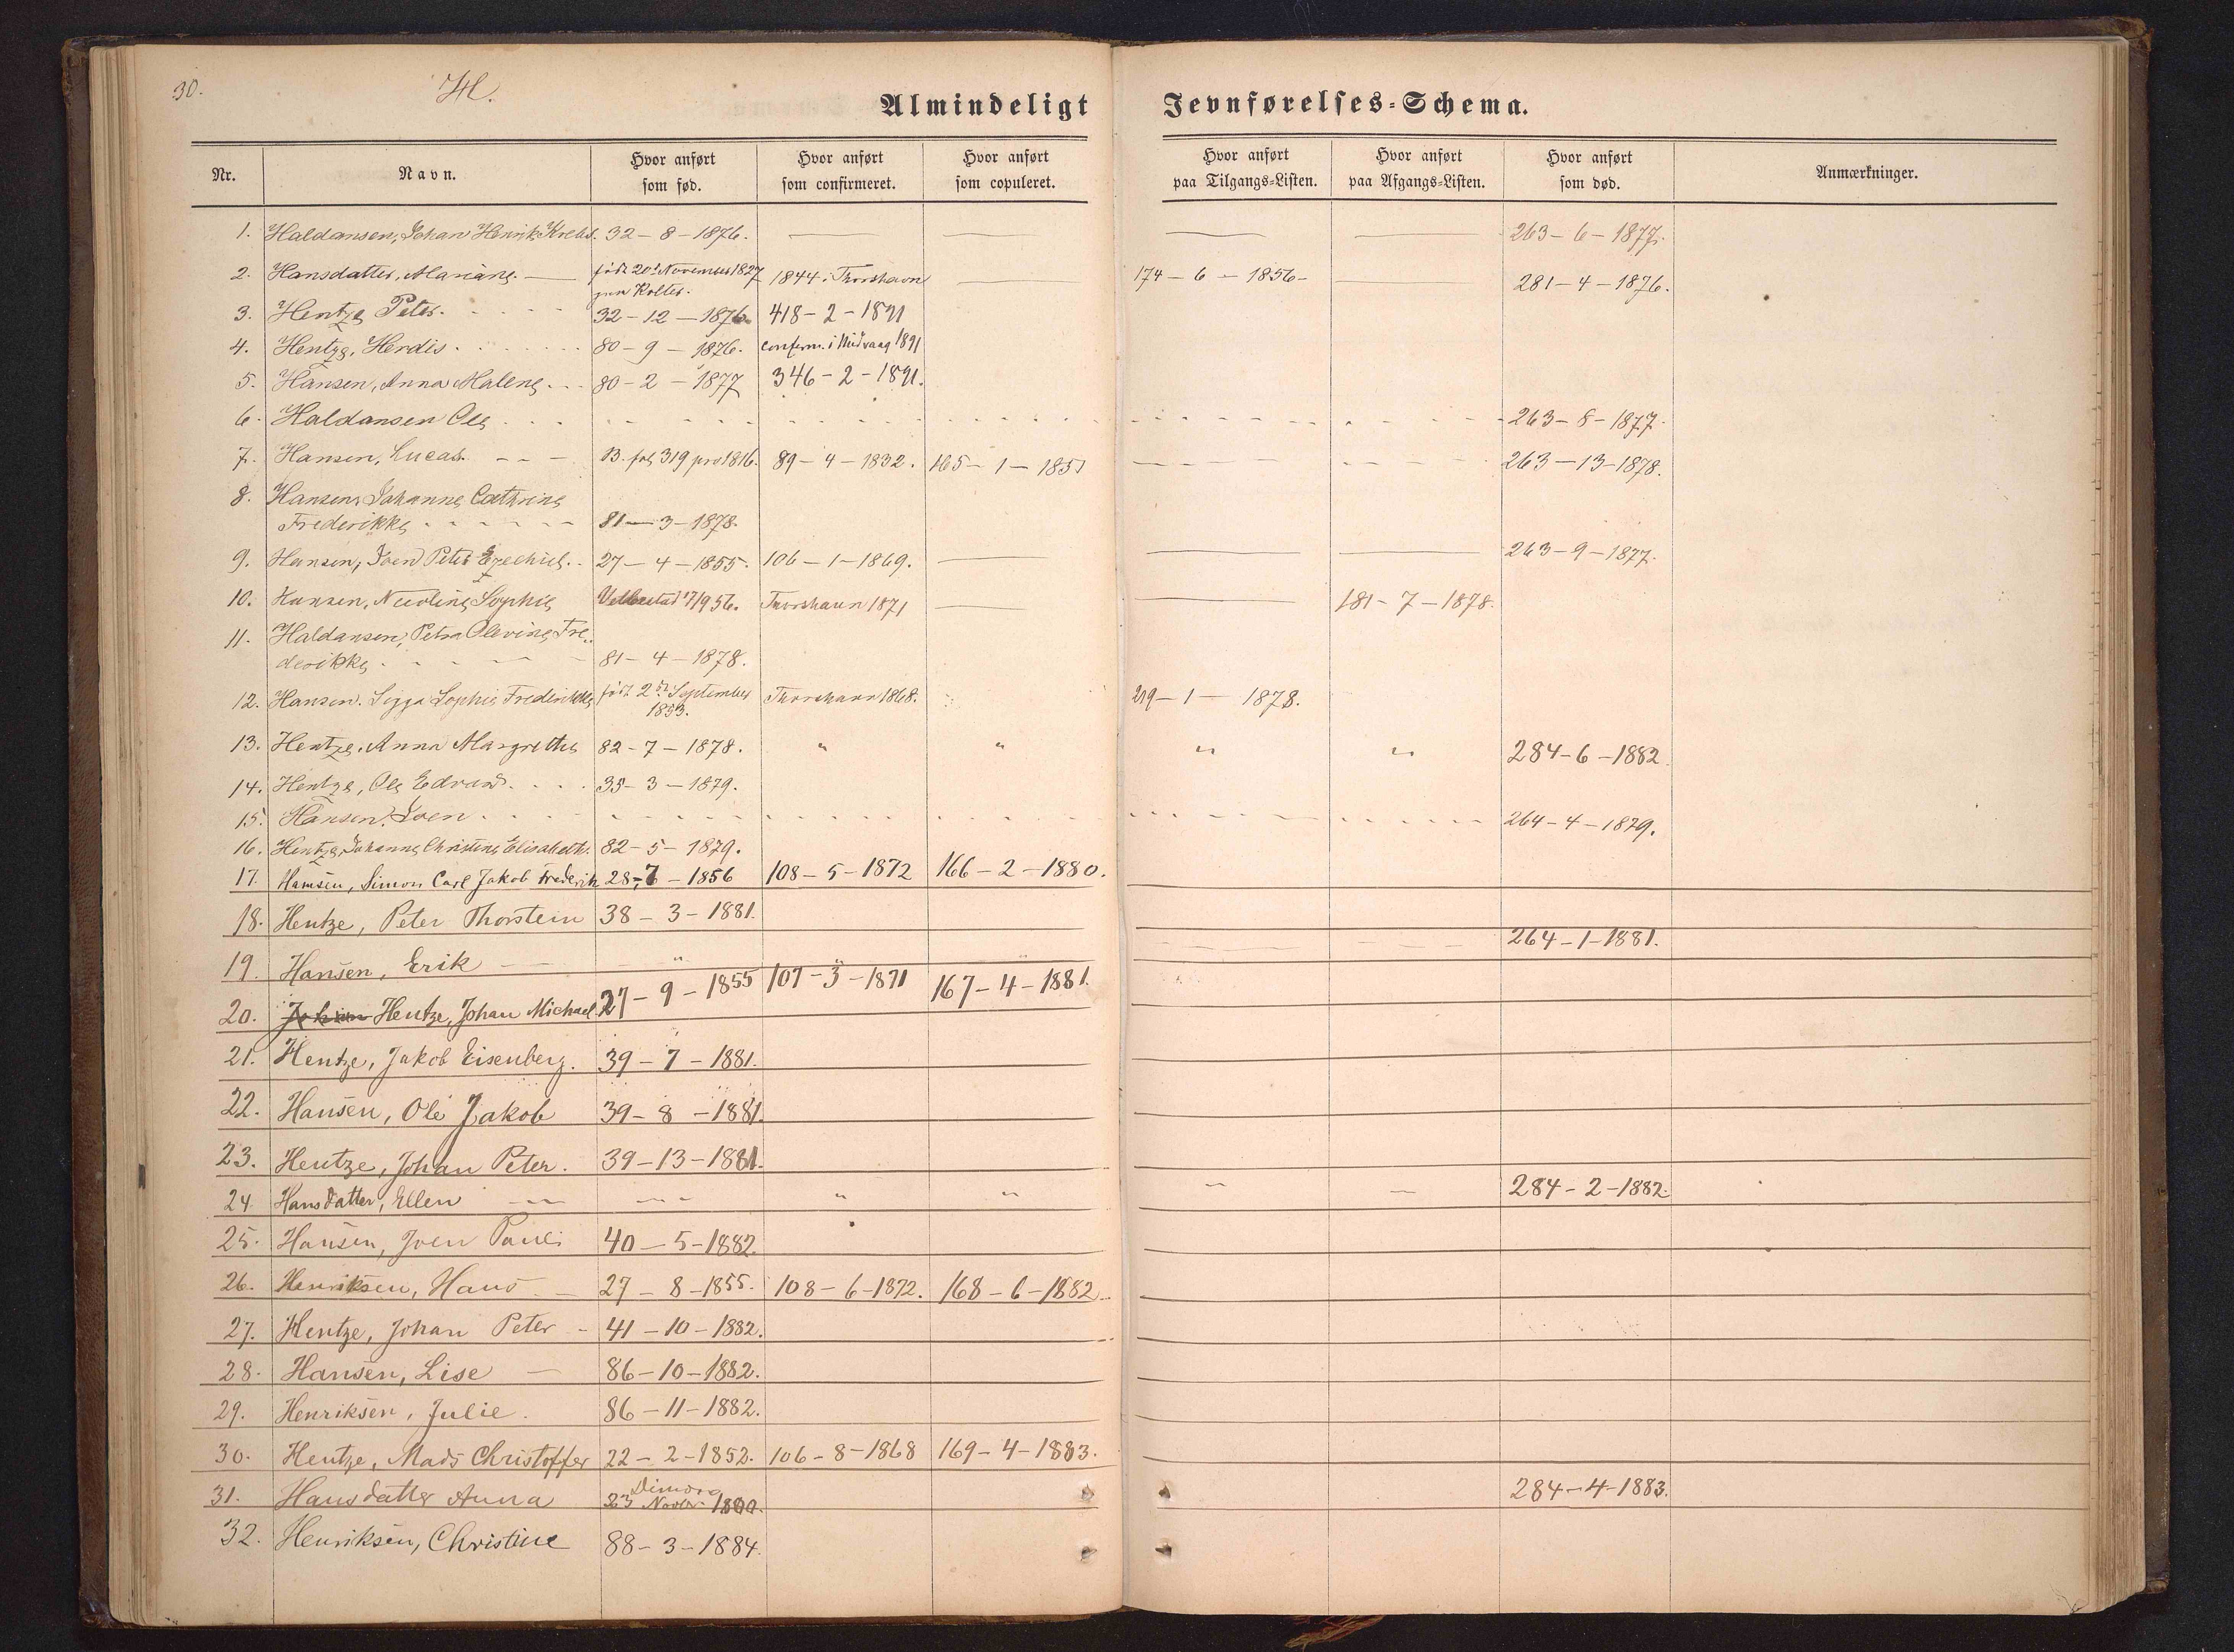 30.
H.
Almindeligt Jevnførelses-Schema.
Nr. Navn. Hvor anført som fød. Hvor anført som confirmeret. Hvor anført som copuleret. Hvor anført paa Tilgangs-Listen. Hvor anført paa Afgangs-Listen. Hvor anført som død. Anmærkninger.
1. Haldansen, Johan Henrik Krebs. 32 - 8 - 1876. — — — — 263 - 6 - 1877.
2. Hansdatter, Mariane — født 20de November 1827 1844 i Thorshavn — 174 - 6 - 1856 - — 281 - 4 - 1876.
paa Kolter.
3. Hentze Peter. 32 - 12 - 1876 418 - 2 - 1891
4. Hentze, Herdis. 80 - 9 - 1876. Conferm. i Midvaag 1891
5. Hansen, Anna Malene. 80 - 2 - 1877 346 - 2 - 1891.
6. Haldansen Ole 263 - 8 - 1877.
7. Hansen, Lucas. B. fol 319 pro 1816. 89 - 4 - 1832. 165 - 1 - 1851 263 - 13 - 1878.
8. Hansen, Johanne Cathrine
Frederikke 81 - 3 - 1878.
9. Hansen, Joen Peter Ezechiel. 27 - 4 - 1855. 106 - 1 - 1869. — — — 263 - 9 - 1877.
10. Hansen, Sophie Velbestad 17/9 56. Thorshavn 1871 — — 181 - 7 - 1878.
11. Haldansen, Petra Olevine Fre-
derikke 81 - 4 - 1878.
12. Hansen. Sigga Sophie Frederikke født 2den September Thorshavn 1868. 219 - 1 - 1878.
1853.
13. Hentze, Anna Margrethe 82 - 7 - 1878. " " " " 284 - 6 - 1882.
14. Hentze, Ole Edvard. 35 - 3 - 1879.
15. Hansen, Joen 264 - 4 - 1879.
16. Hentze, Johanne Christine Elisabeth. 82 - 5 - 1879.
17. Hansen, Simon Carl Jakob Frederik 28 - 7 - 1856 108 - 5 - 1872 166 - 2 - 1880.
18. Hentze, Peter Thorstein 38 - 3 - 1881.
19. Hansen, Erik — " " " 264 - 1 - 1881.
20. Johan Hentze, Johan Michael 27 - 9 - 1855 107 - 3 - 1871 167 - 4 - 1881.
21. Hentze, Jakob Eisenberg. 39 - 7 - 1881.
22. Hansen, Ole Jakob 39 - 8 - 1881.
23. Hentze, Johan Peter. 39 - 13 - 1881.
24. Hansdatter, Ellen — " " " — 284 - 2 - 1882.
25. Hansen, Joen Pauli 40 - 5 - 1882.
26. Henriksen, Hans — 27 - 8 - 1855. 108 - 6 - 1872. 168 - 6 - 1882.
27. Hentze, Johan Peter - 41 - 10 - 1882.
28. Hansen, Lise — 86 - 10 - 1882.
29. Henriksen, Julie. 86 - 11 - 1882.
30. Hentze, Mads Christoffer 22 - 2 - 1852. 106 - 8 - 1868 169 - 4 - 1883.
31. Hansdatter Anna 23 Novbr. 1800. 284 - 4 - 1883.
32. Henriksen, Christine 88 - 3 - 1884.